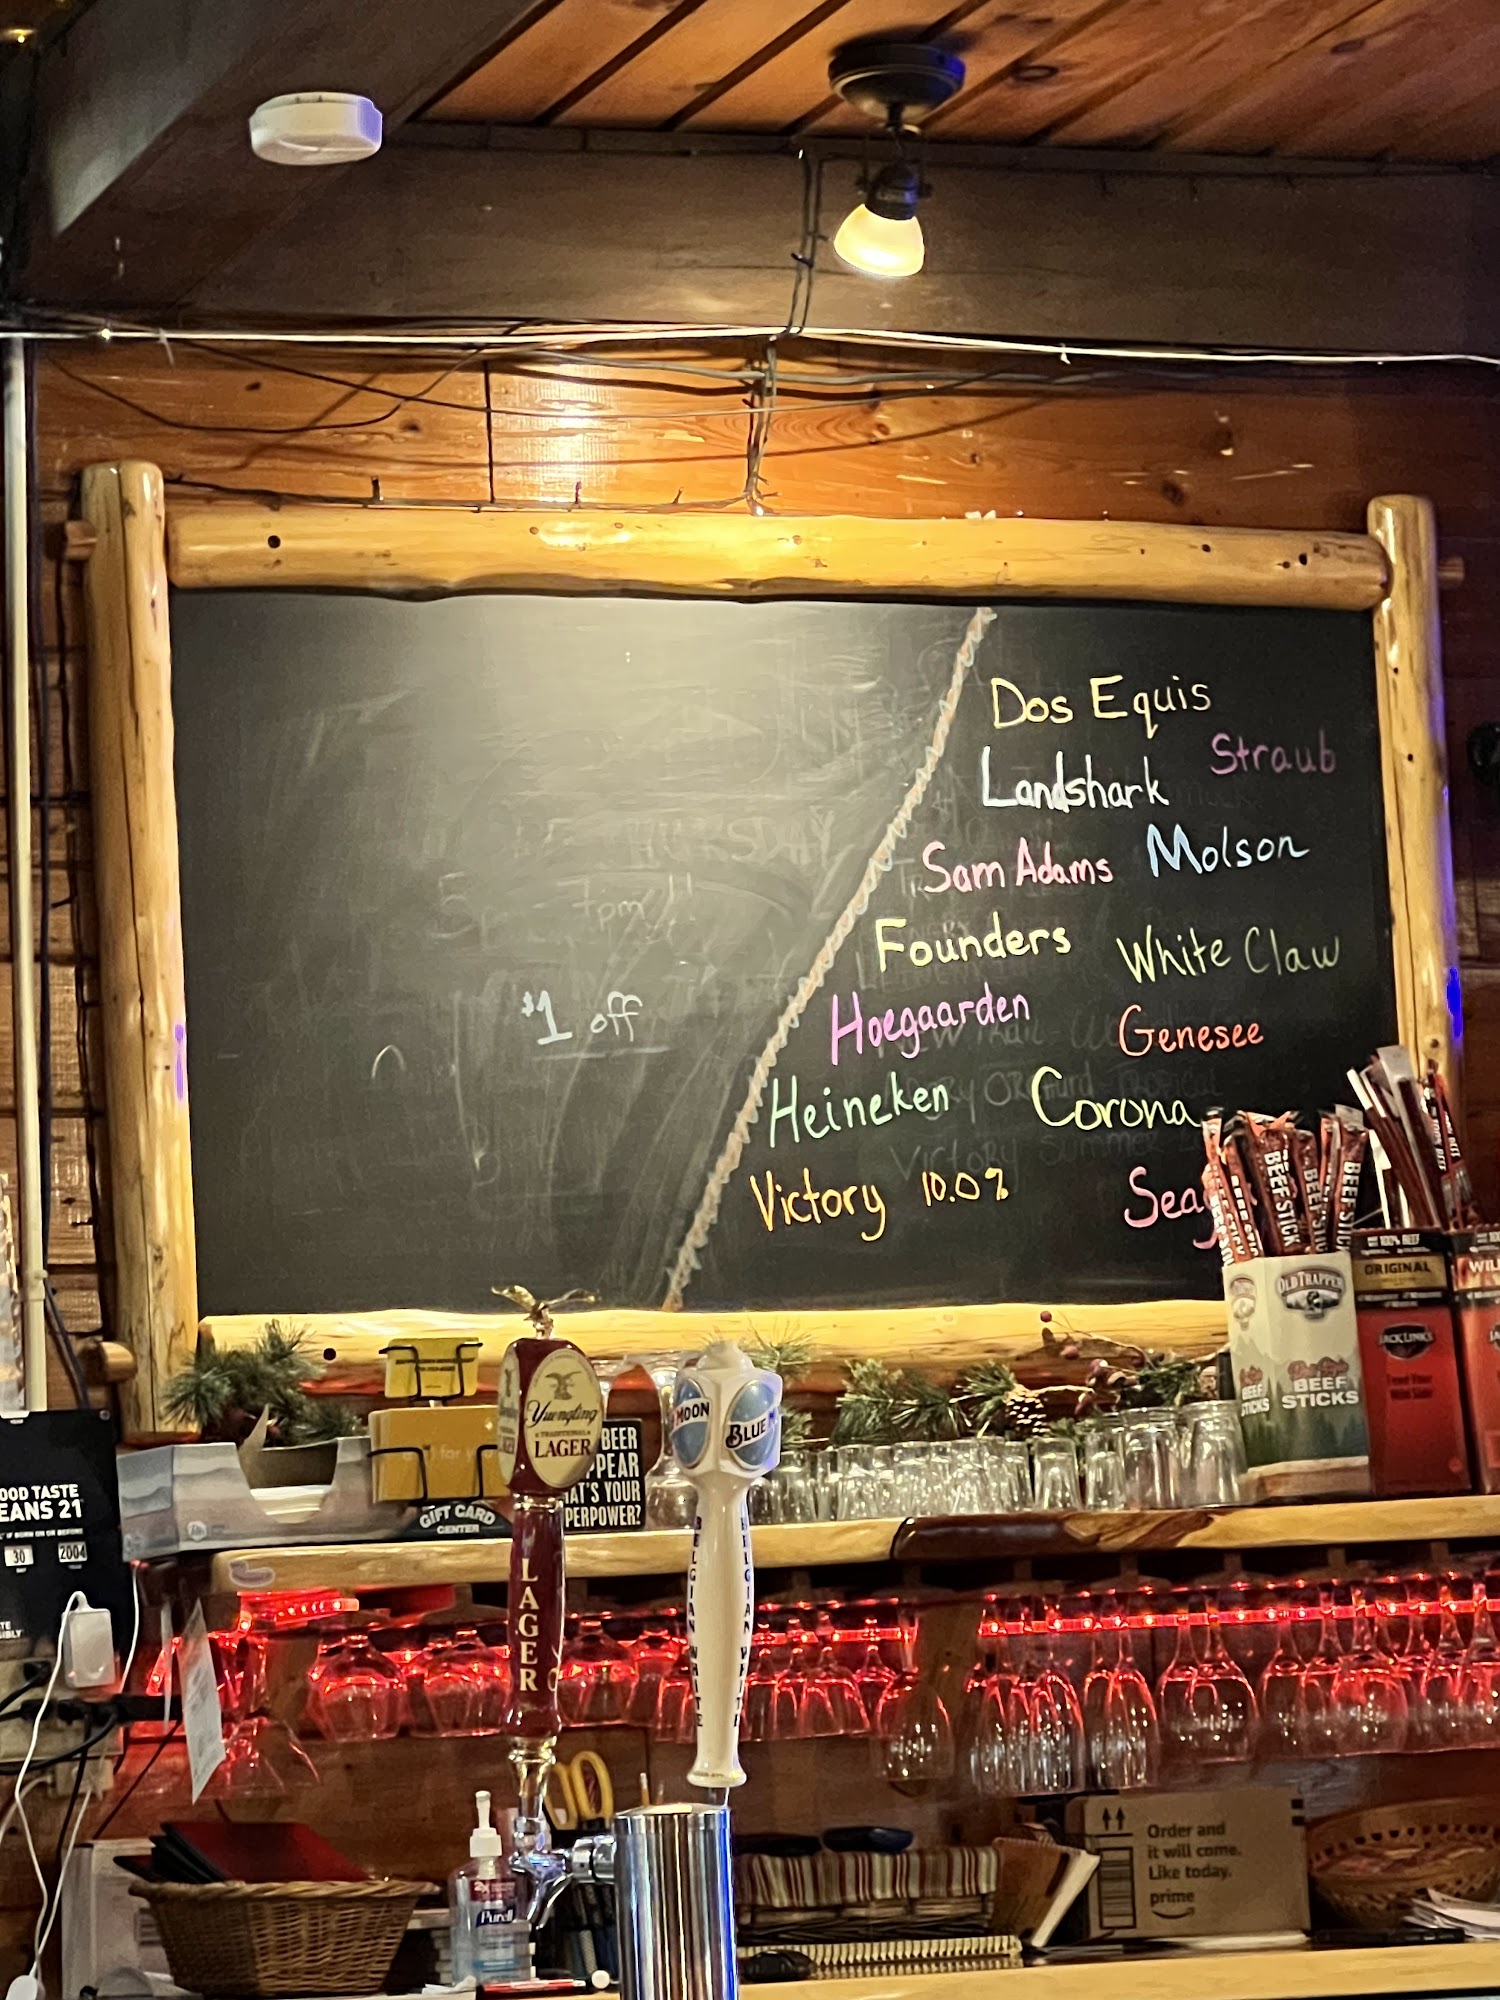 Dos Equis
Straub
Landshark
Sam Adams
Molson
Founders
White Claw
Hoegaarden
Genesee
Heineken
Corona
Victory 10.0%
Sea
THURSDAY
7pm!!
$1 off
Yuengling
TRADITIONAL
LAGER
LAGER
MOON
BLUE M
BELGIAN WHITE
BELGIAN WHITE
BEER
PPEAR
AT'S YOUR
PERPOWER?
GIFT CARD
CENTER
OOD TASTE
EANS 21
30
2004
OLD TRAPPER
BEEF
STICKS
BEEF
STICKS
BEEF STICK
BEEF STICK
100% BEEF
ORIGINAL
JACK LINK'S
Feed Your
Wild Side
WIL
Purell
Order and
it will come.
Like today.
prime